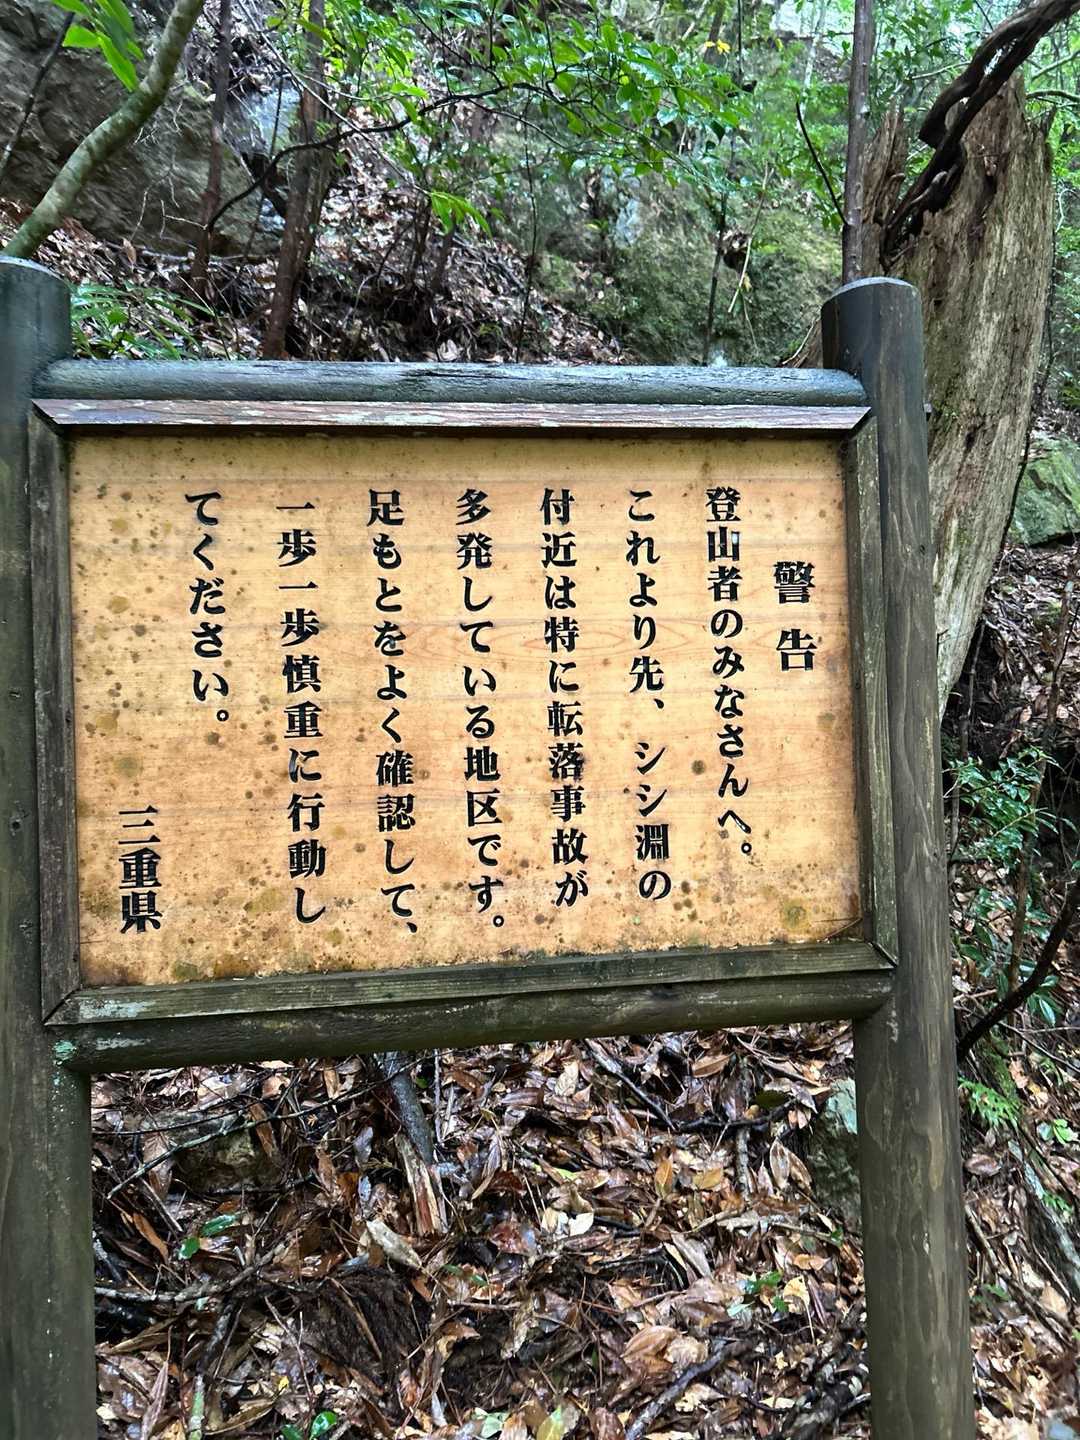 警告
登山者のみなさんへ。
これより先、シシ淵の
付近は特に転落事故が
多発している地区です。
足もとをよく確認して、
一歩一歩慎重に行動し
てください。
三重県